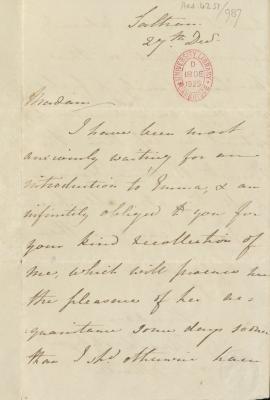 Add. 4251/987
Saltram
27th Decr
UNIVERSITY LIBRARY
18 DE
1925
Madam
I have been most
anxiously waiting for an
introduction to Emma, & am
infinitely obliged to you for
your kind recollection of
me, which will procure me
the pleasure of her ac-
quaintance some days sooner
than I shd otherwise have